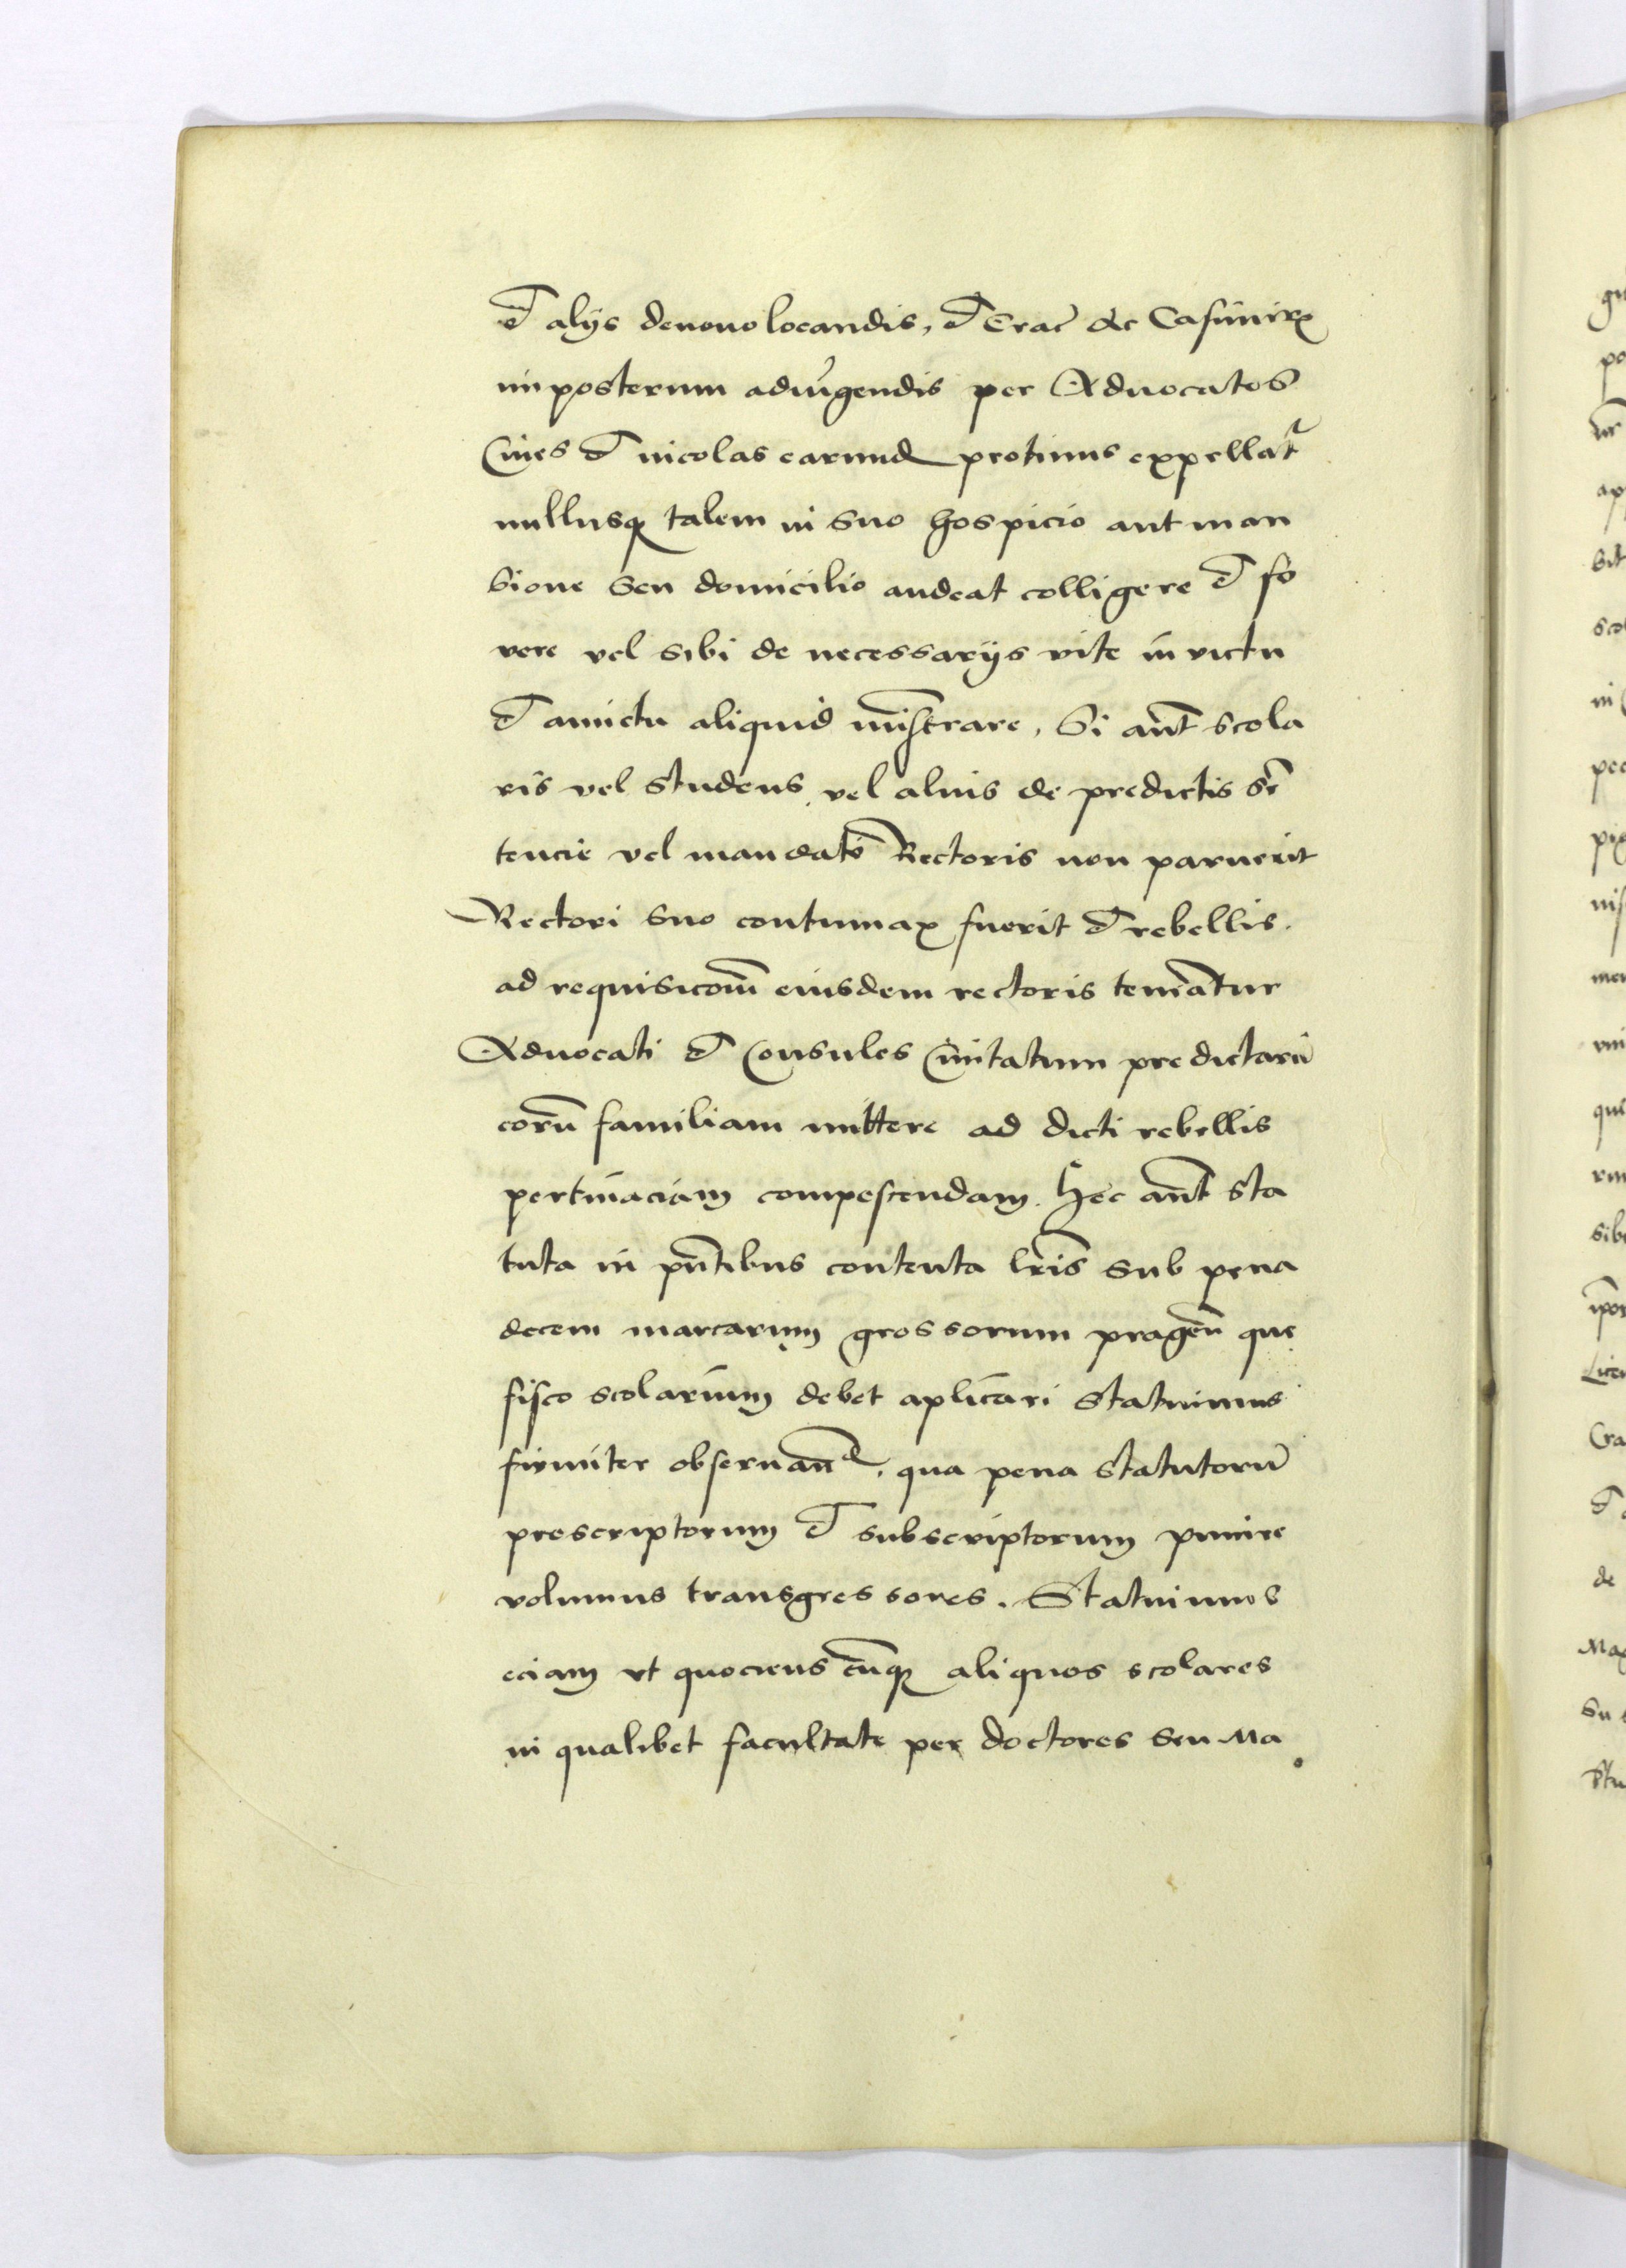 et alijs denouo locandis, et Crac̄ ac Casimirꝫ
imposterum adiūgendis per Aduocatos
Ciues et incolas earund protinus expellat᷑
nullusqꝫ talem in suo hospicio aut man
sione seu domicilio audeat colligere et fo
vere vel sibi de necessarijs vite in victu
et amictu aliquid mi̅strare, Si aut̅ scola
ris vel studens vel alius de predictis se̅
tencie vel mandato Rectoris non paruerit
Rectori suo contumax fuerit et rebellis.
ad requisicom̅ eiusdem rectoris teneantur
Aduocati et Consules Ciuitatum predictarū
eorū familiam mittere ad dicti rebellis
pertinaciam compescendam. Hec aut̅ sta
tuta in pn̅tibus contenta lr̅is sub pena
decem marcarum grossorum pragen̅ que
fisco scolarium debet aplicari statuimus
firmiter obseruand̅. qua pena statutorū
prescriptorum et subscriptorum punire
volumus transgressores. Statuimus
eciam vt quociens cu̅qꝫ aliquos scolares
in qualibet facultate per doctores seu Ma